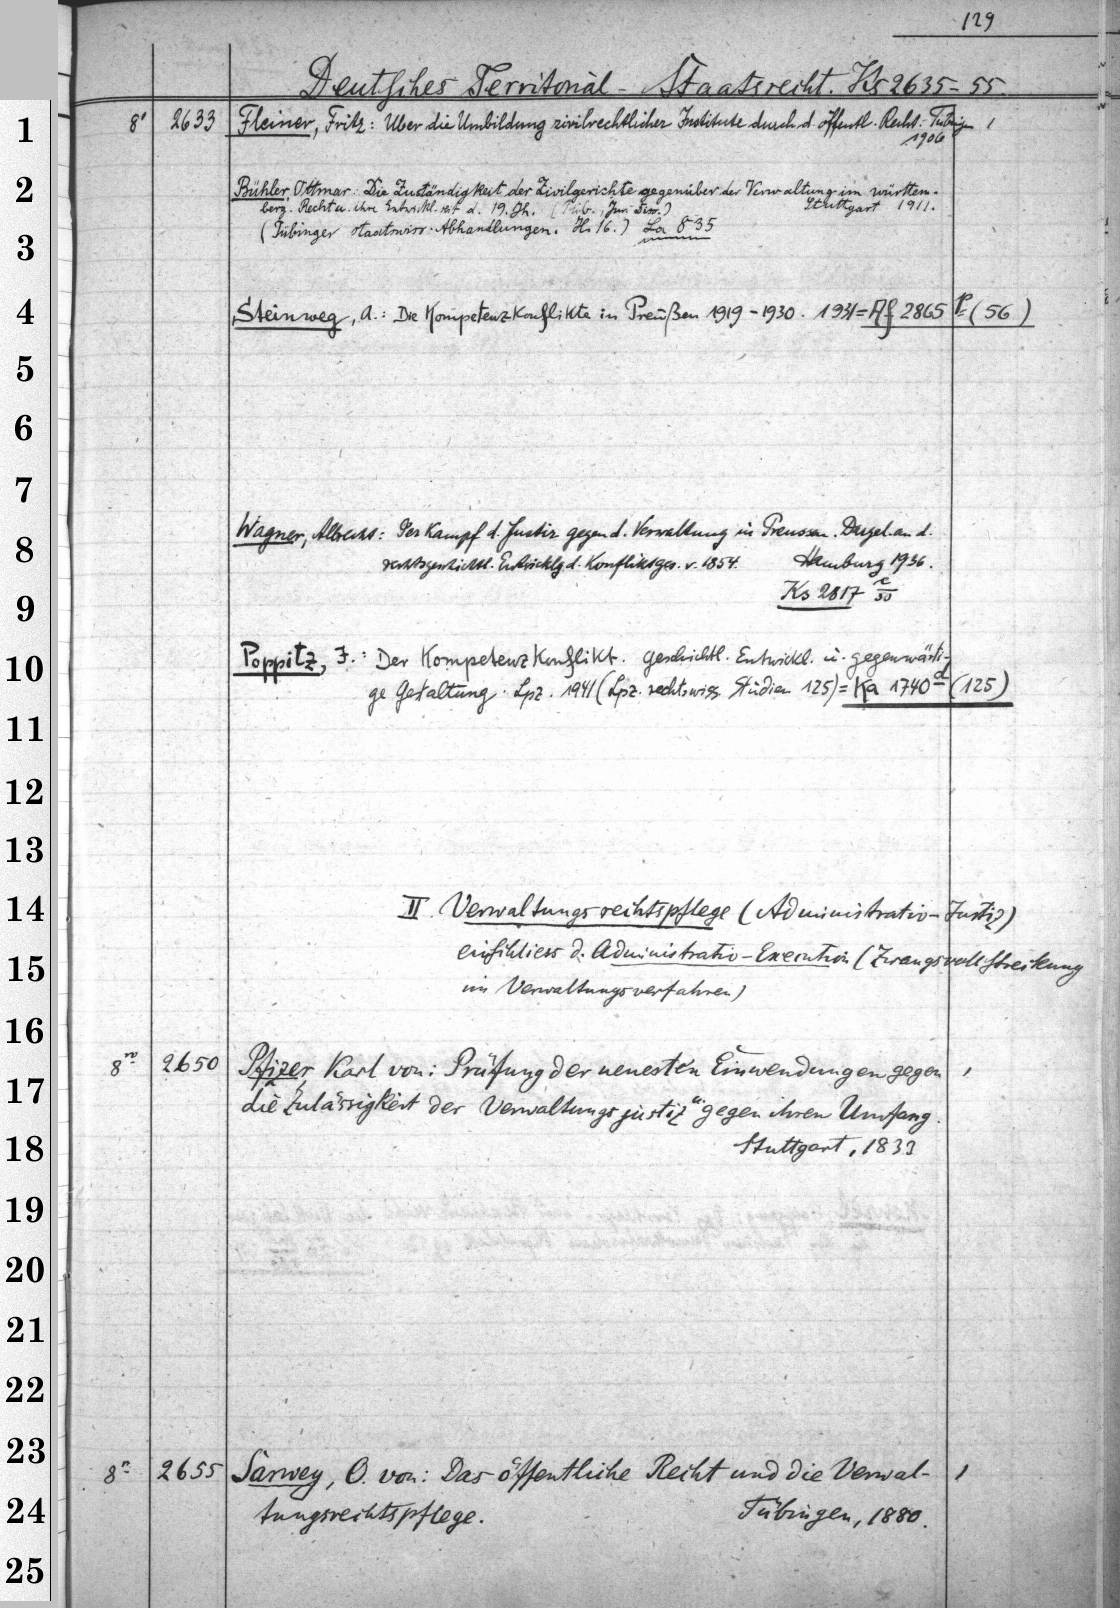 129
Deutsches Territorial-Staatsrecht. Ks 2635-55.
1
8° 2633 Fleiner, Fritz: Über die Umbildung zivilrechtlicher Institute durch d. öffentl. Recht. Tübingen 1
1906
2
Bühler, Ottmar: Die Zuständigkeit der Zivilgerichte gegenüber der Verwaltung im württem-
berg. Recht u. ihre Entwickl. seit d. 19. Jh. (Tüb., Jur. Diss.) Stuttgart 1911.
3
(Tübinger staatswiss. Abhandlungen. H. 16.) La 835
4
Steinweg, A.: Die Kompetenzkonflikte in Preußen 1919-1930. 1931 = Af 2865 (56)
5
6
7
8
Wagner, Albrecht: Der Kampf d. Justiz gegen d. Verwaltung in Preussen. Dargel. an d.
rechtsgeschichtl. Entwicklg d. Konfliktsges. v. 1854. Hamburg 1936.
9
Ks 2817 c/50
10
Poppitz, J.: Der Kompetenzkonflikt. Geschichtl. Entwickl. u. gegenwärti-
ge Gestaltung. Lpz. 1941 (Lpz. rechtswiss. Studien 125) = Ka 1740 d (125)
11
12
13
14
II. Verwaltungsrechtspflege (Administrativ-Justiz)
15
einschliess d. Administrativ-Execution (Zwangsvollstreckung
im Verwaltungsverfahren)
16
17
8° 2650 Pfizer, Karl von: Prüfung der neuesten Einwendungen gegen 1
die Zulässigkeit der Verwaltungsjustiz u. gegen ihren Umfang.
18
Stuttgart, 1833
19
20
21
22
23
8° 2655 Sarwey, O. von: Das öffentliche Recht und die Verwal- 1
24
tungsrechtspflege. Tübingen, 1880.
25